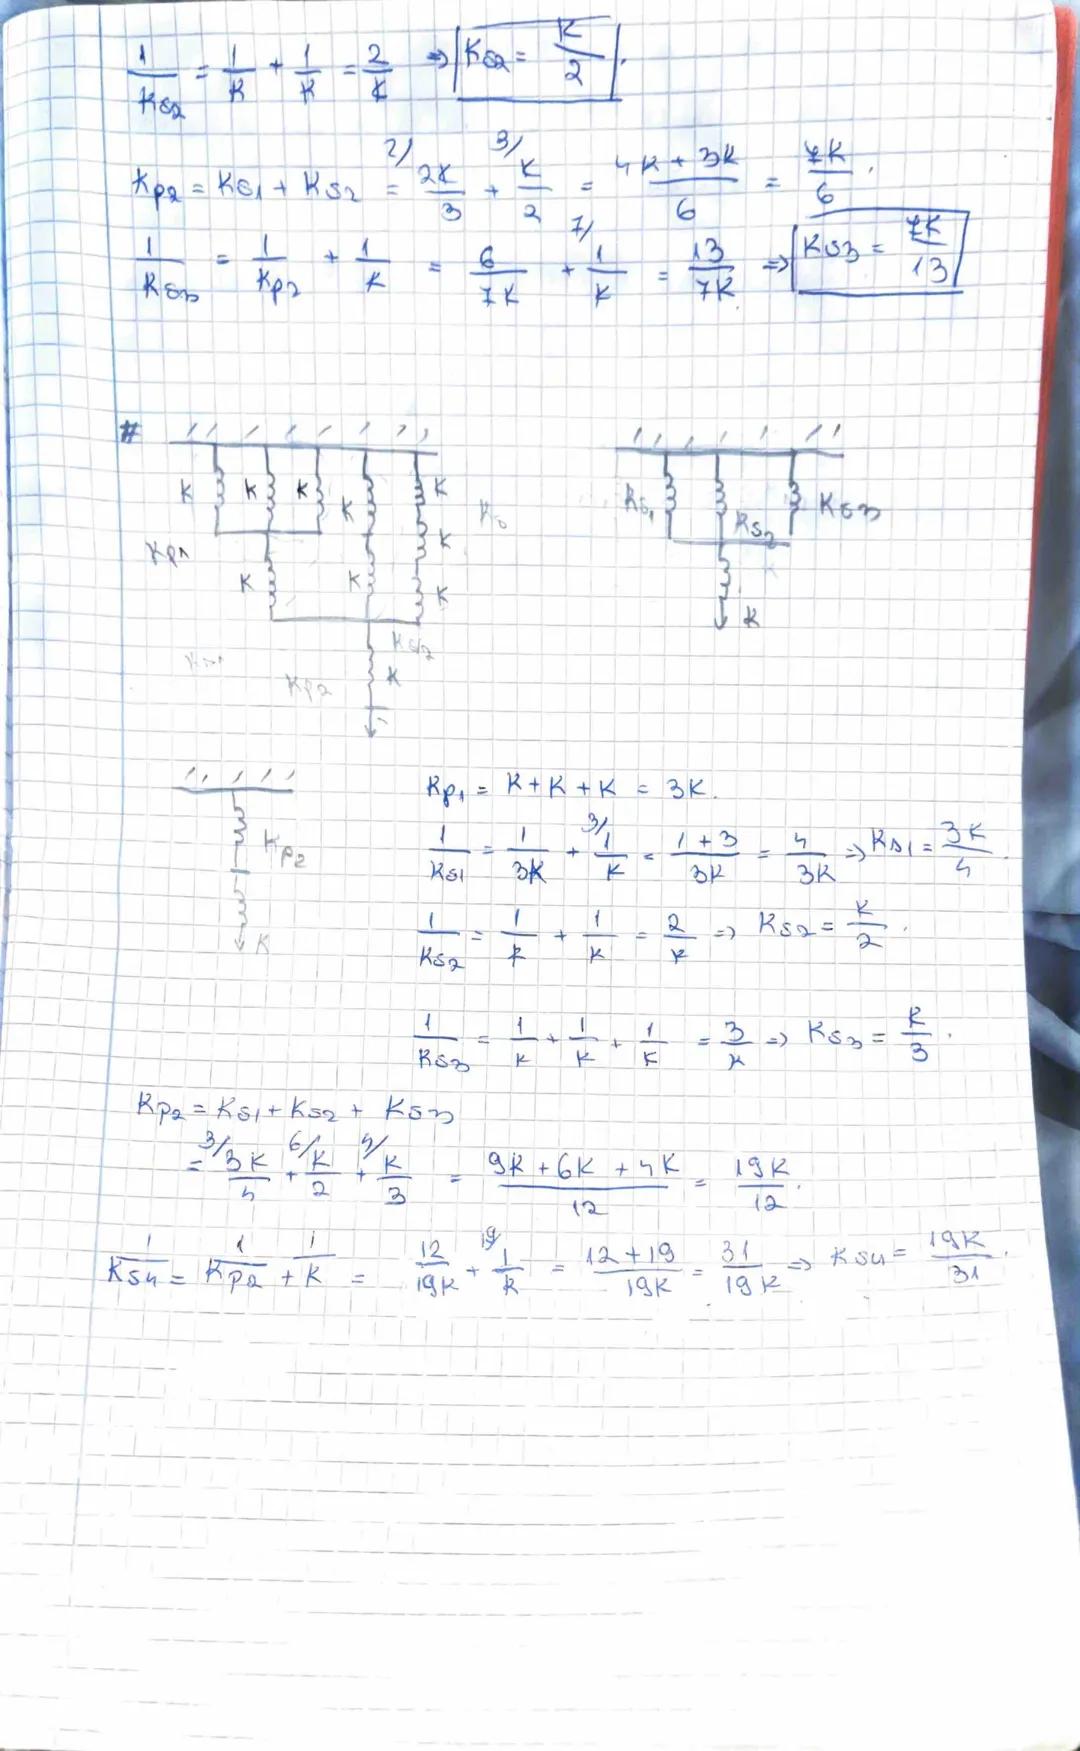 1/Ks2 = 1/K + 1/K = 2/K ⇒ Ks2 = K/2.
Kp2 = Ks1 + Ks2 = 2/ 2K/3 + 3/ K/2 = (4K + 3K)/6 = 7K/6.
1/Ks3 = 1/Kp2 + 1/K = 6/7K + 7/ 1/K = 13/7K ⇒ Ks3 = 7K/13
#
K K K K K
K
Kp1 K K K
Ks2
Kp2 K
Ks1 Ks2 Ks3
K
Kp2
K
Kp1 = K + K + K = 3K.
1/Ks1 = 1/3K + 3/ 1/K = (1 + 3)/3K = 4/3K ⇒ Ks1 = 3K/4.
1/Ks2 = 1/K + 1/K = 2/K ⇒ Ks2 = K/2.
1/Ks3 = 1/K + 1/K + 1/K = 3/K ⇒ Ks3 = K/3.
Kp2 = Ks1 + Ks2 + Ks3
= 3/ 3K/4 + 6/ K/2 + 4/ K/3 = (9K + 6K + 4K)/12 = 19K/12.
1/Ks4 = 1/Kp2 + 1/K = 12/19K + 19/ 1/K = (12 + 19)/19K = 31/19K ⇒ Ks4 = 19K/31.